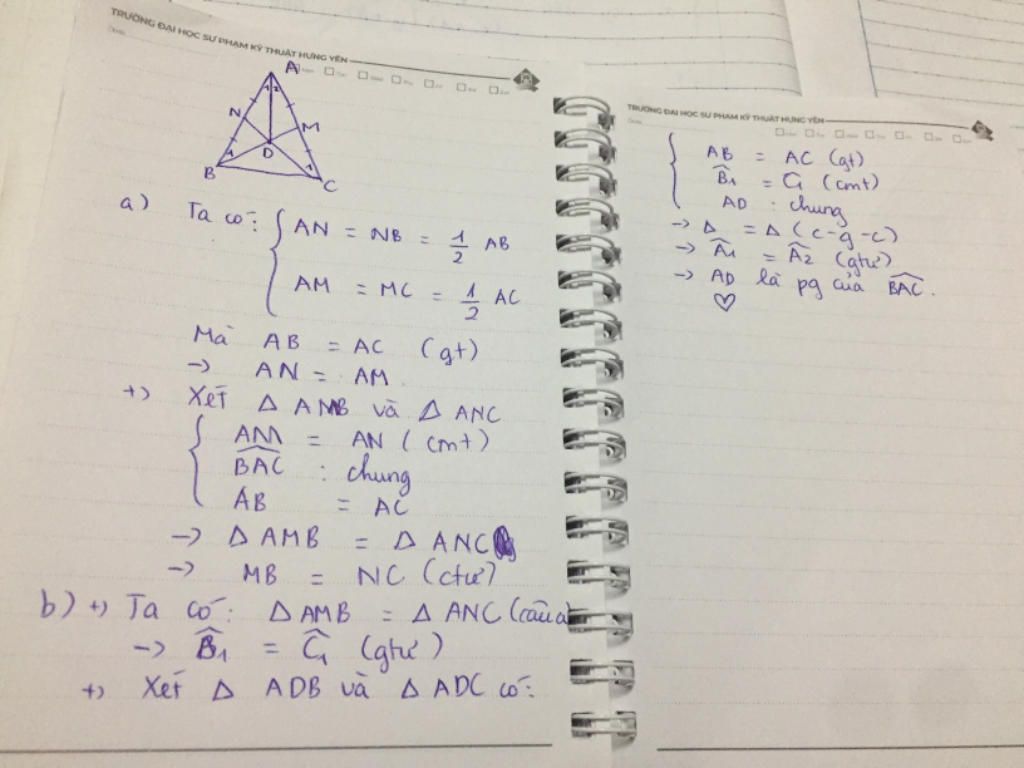 TRƯỜNG ĐẠI HỌC SƯ PHẠM KỸ THUẬT HƯNG YÊN
A
N
M
D
B
C
1 2
1
1
a) Ta có: { AN = NB = 1/2 AB
AM = MC = 1/2 AC
Mà AB = AC (gt)
-> AN = AM
+) Xét Δ AMB và Δ ANC
{ AM = AN (cmt)
BAC^ : chung
AB = AC
-> Δ AMB = Δ ANC
-> MB = NC (ctư)
b) +) Ta có: Δ AMB = Δ ANC (câu a)
-> B̂1 = Ĉ1 (gtư)
+) Xét Δ ADB và Δ ADC có:
TRƯỜNG ĐẠI HỌC SƯ PHẠM KỸ THUẬT HƯNG YÊN
{ AB = AC (gt)
B̂1 = C1 (cmt)
AD : chung
-> Δ = Δ (c-g-c)
-> Â1 = Â2 (gtư)
-> AD là pg của BAC^.
♡